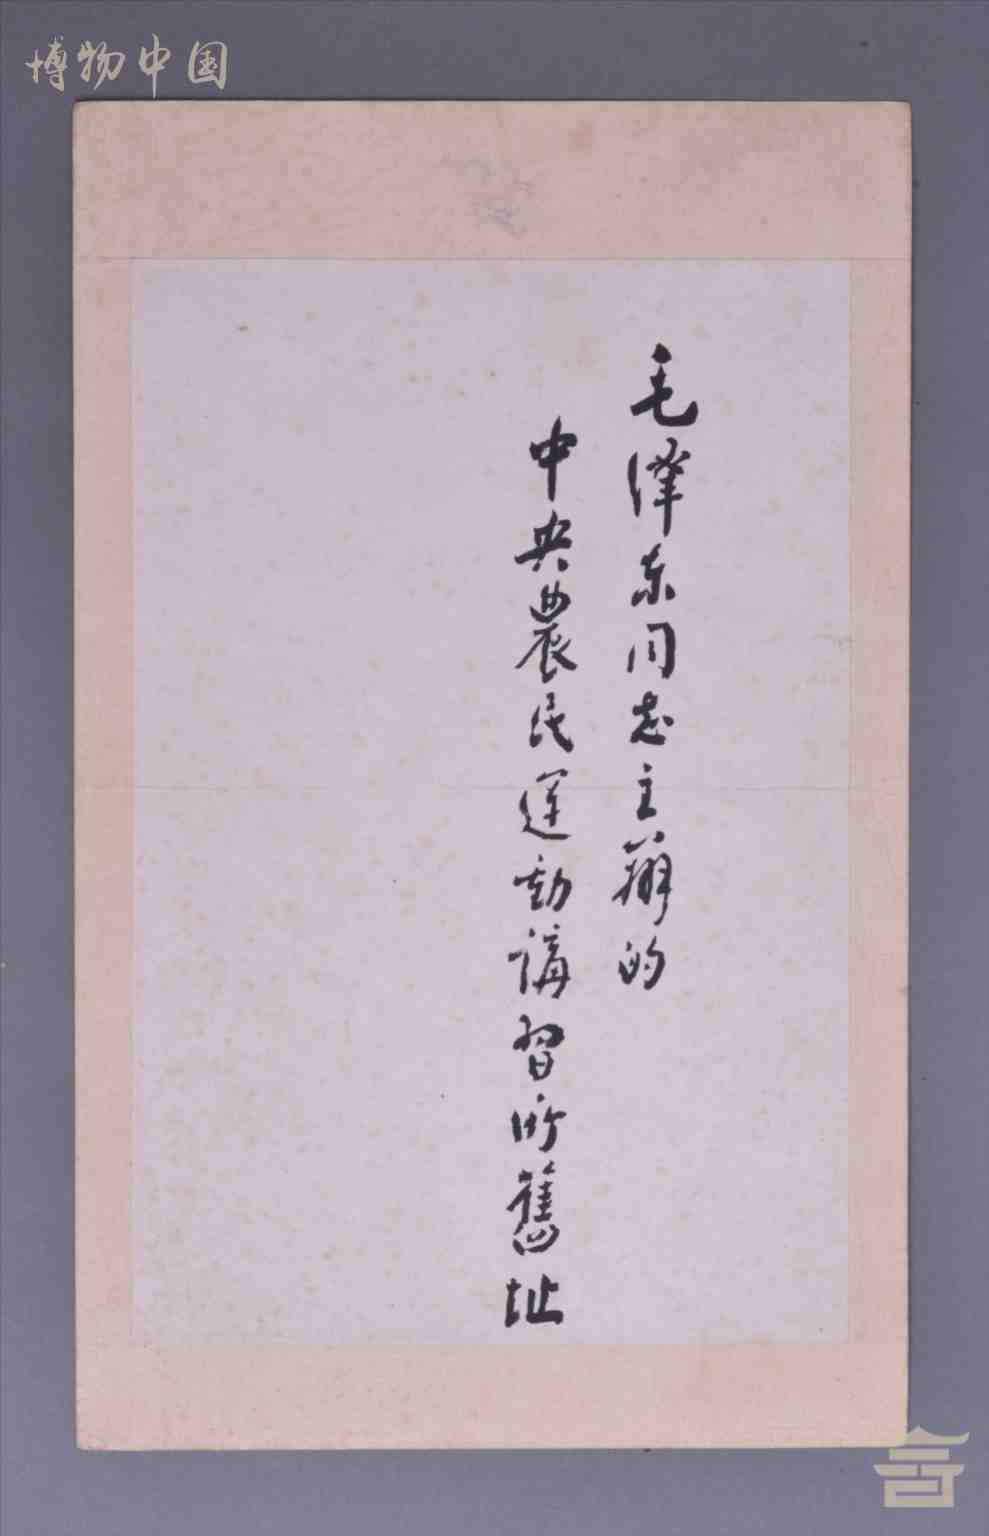 博物中国
毛泽东同志主辦的
中央農民運動講習所舊址